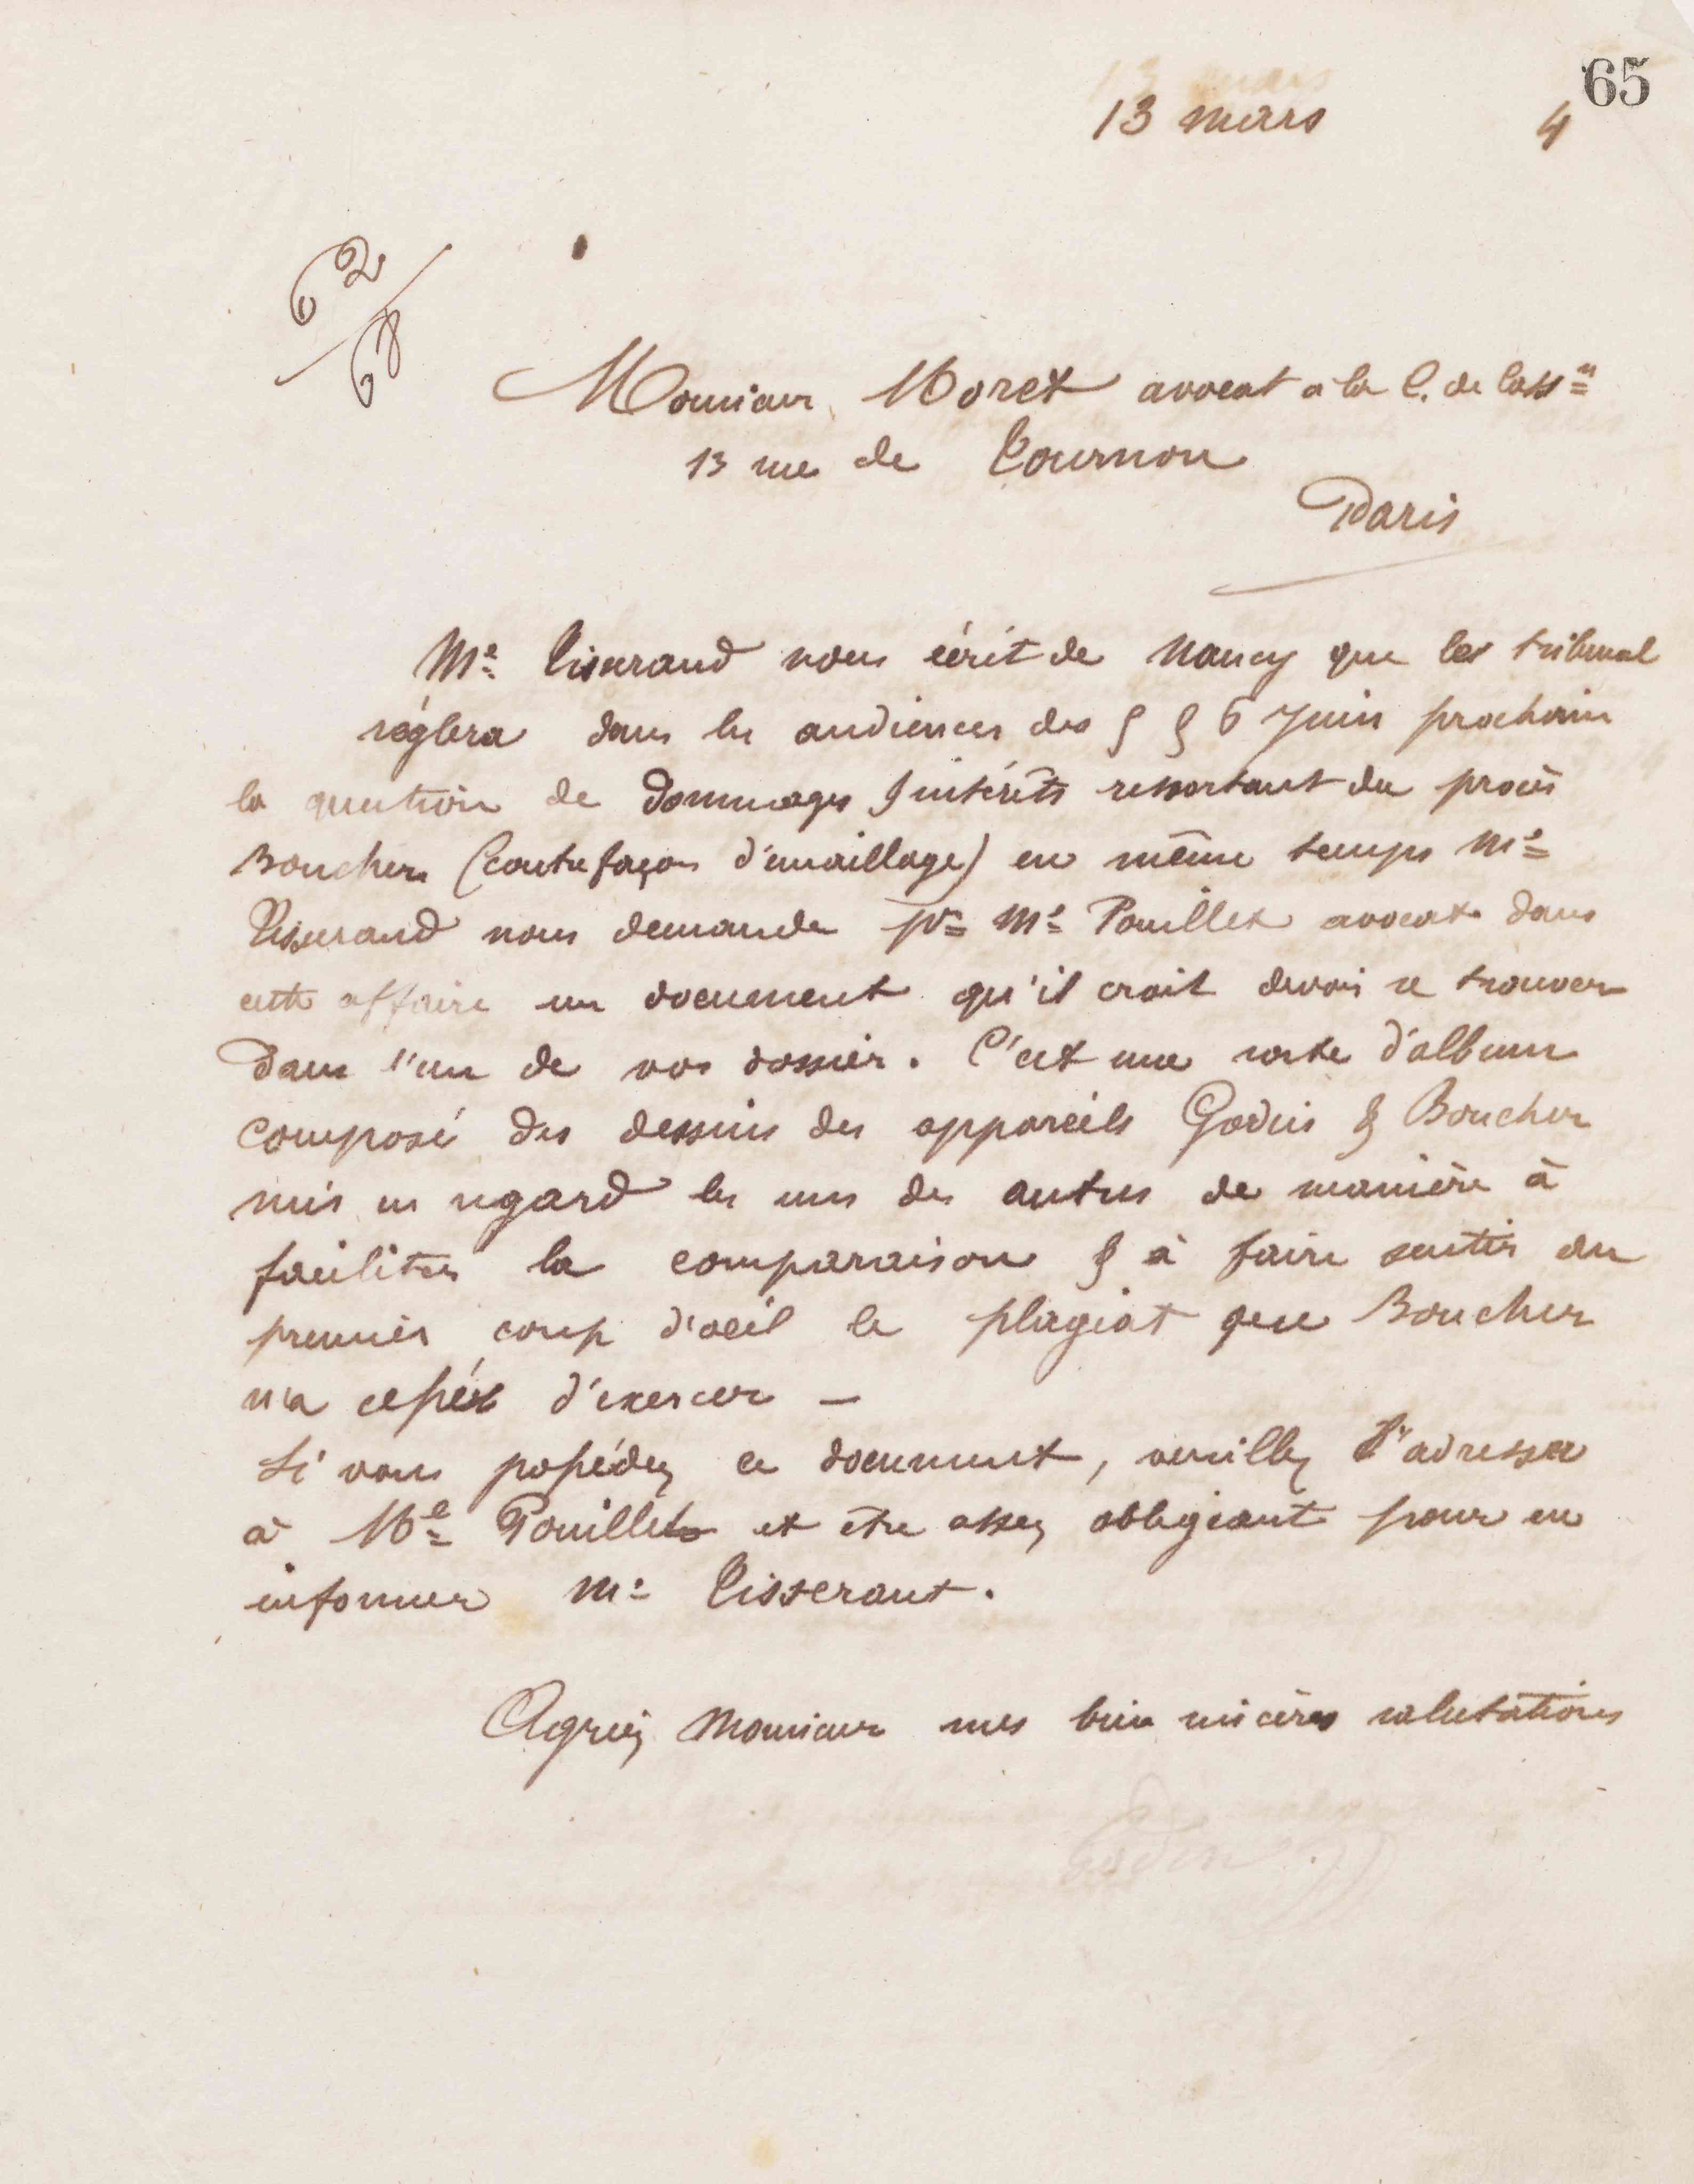 65
13 mars 4
62
68
Monsieur Moret avocat à la C. de Cassn
13 rue de Tournon
Paris
Me Tisserand nous écrit de Nancy que le tribunal
réglera dans les audiences des 5 & 6 Juin prochain
la question de dommages & intérêts ressortant du procès
Boucher (contrefaçon d'émaillage) en même temps Me
Tisserand nous demande pr Me Pouillet avocat dans
cette affaire un document qu'il croit devoir se trouver
dans l'un de vos dossiers. C'est une sorte d'album
composé des dessins des appareils Godin & Boucher
mis en regard les uns des autres de manière à
faciliter la comparaison & à faire sentir au
premier coup d'oeil le plagiat que Boucher
n'a cessé d'exercer —
Si vous possédez ce document, veuillez l'adresser
à Me Pouillet et être assez obligeant pour en
informer Me Tisserant.
Agréez Monsieur mes bien sincères salutations
Godin